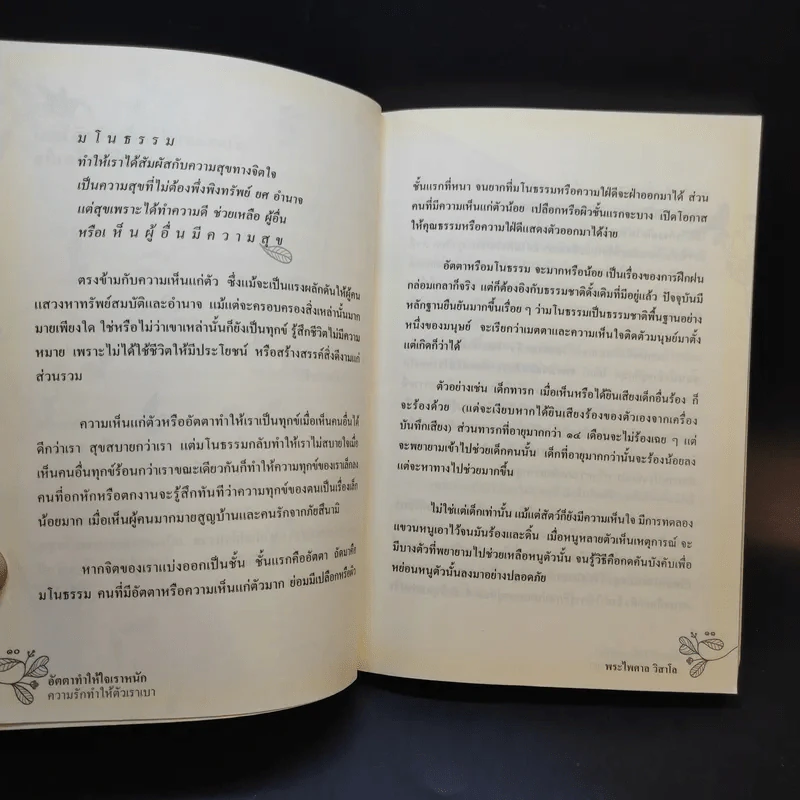 ม โ น ธ ร ร ม
ทำให้เราได้สัมผัสกับความสุขทางจิตใจ
เป็นความสุขที่ไม่ต้องพึ่งพิงทรัพย์ ยศ อำนาจ
แต่สุขเพราะได้ทำความดี ช่วยเหลือ ผู้อื่น
หรือเ ห็ น ผู้ อื่ น มี ค ว า ม สุ ข
ตรงข้ามกับความเห็นแก่ตัว ซึ่งแม้จะเป็นแรงผลักดันให้ผู้คน
แสวงหาทรัพย์สมบัติและอำนาจ แม้แต่จะครอบครองสิ่งเหล่านั้นมาก
มายเพียงใด ใช่หรือไม่ว่าเขาเหล่านั้นก็ยังเป็นทุกข์ รู้สึกชีวิตไม่มีความ
หมาย เพราะไม่ได้ใช้ชีวิตให้มีประโยชน์ หรือสร้างสรรค์สิ่งดีงามแก่
ส่วนรวม
ความเห็นแก่ตัวหรืออัตตาทำให้เราเป็นทุกข์เมื่อเห็นคนอื่นได้
ดีกว่าเรา สุขสบายกว่าเรา แต่มโนธรรมกลับทำให้เราไม่สบายใจเมื่อ
เห็นคนอื่นทุกข์ร้อนกว่าเราขณะเดียวกันก็ทำให้ความทุกข์ของเราเล็กลง
คนที่อกหักหรือตกงานจะรู้สึกทันทีว่าความทุกข์ของตนเป็นเรื่องเล็ก
น้อยมาก เมื่อเห็นผู้คนมากมายสูญบ้านและคนรักจากภัยสึนามิ
หากจิตของเราแบ่งออกเป็นชั้น ชั้นแรกคืออัตตา ถัดมาคือ
มโนธรรม คนที่มีอัตตาหรือความเห็นแก่ตัวมาก ย่อมมีเปลือกหรือผิว
๑๐
อัตตาทำให้ใจเราหนัก
ความรักทำให้ตัวเราเบา
ชั้นแรกที่หนา จนยากที่มโนธรรมหรือความใฝ่ดีจะฝ่าออกมาได้ ส่วน
คนที่มีความเห็นแก่ตัวน้อย เปลือกหรือผิวชั้นแรกจะบาง เปิดโอกาส
ให้คุณธรรมหรือความใฝ่ดีแสดงตัวออกมาได้ง่าย
อัตตาหรือมโนธรรม จะมากหรือน้อย เป็นเรื่องของการฝึกฝน
กล่อมเกลาก็จริง แต่ก็ต้องอิงกับธรรมชาติดั้งเดิมที่มีอยู่แล้ว ปัจจุบันมี
หลักฐานยืนยันมากขึ้นเรื่อย ๆ ว่ามโนธรรมเป็นธรรมชาติพื้นฐานอย่าง
หนึ่งของมนุษย์ จะเรียกว่าเมตตาและความเห็นใจติดตัวมนุษย์มาตั้ง
แต่เกิดก็ว่าได้
ตัวอย่างเช่น เด็กทารก เมื่อเห็นหรือได้ยินเสียงเด็กอื่นร้อง ก็
จะร้องด้วย (แต่จะเงียบหากได้ยินเสียงร้องของตัวเองจากเครื่อง
บันทึกเสียง) ส่วนทารกที่อายุมากกว่า ๑๔ เดือนจะไม่ร้องเฉย ๆ แต่
จะพยายามเข้าไปช่วยเด็กคนนั้น เด็กที่อายุมากกว่านั้นจะร้องน้อยลง
แต่จะหาทางไปช่วยมากขึ้น
ไม่ใช่แต่เด็กเท่านั้น แม้แต่สัตว์ก็ยังมีความเห็นใจ มีการทดลอง
แขวนหนูเอาไว้จนมันร้องและดิ้น เมื่อหนูหลายตัวเห็นเหตุการณ์ จะ
มีบางตัวที่พยายามไปช่วยเหลือหนูตัวนั้น จนรู้วิธีคือกดคันบังคับเพื่อ
หย่อนหนูตัวนั้นลงมาอย่างปลอดภัย
๑๑
พระไพศาล วิสาโล